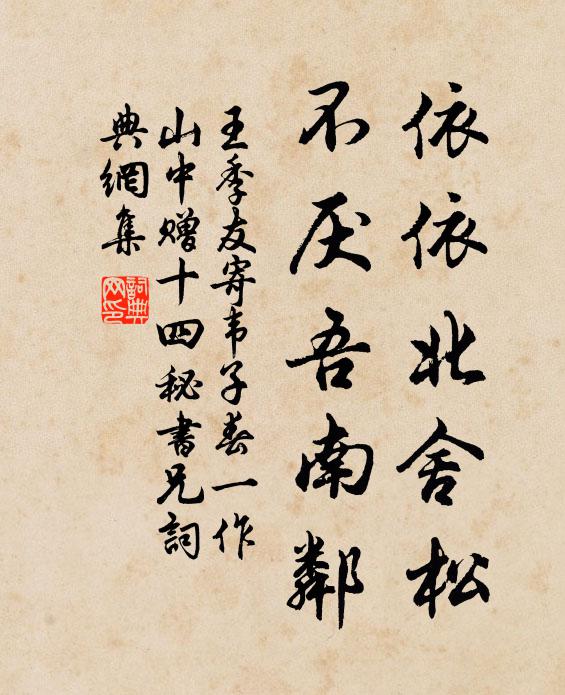 依依北舍松
不厌吾南鄰
王季友寄韦子春一作
山中赠十四秘書兄詞
典網集
詞典网印